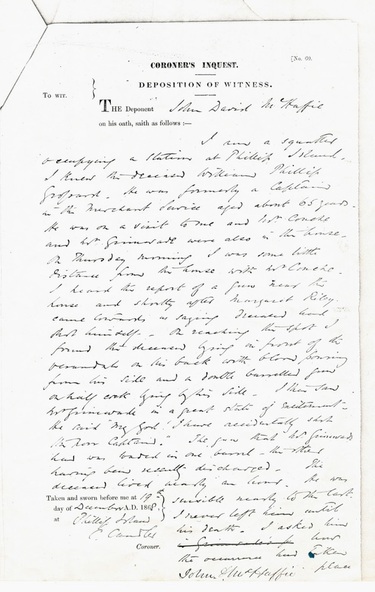 CORONER'S INQUEST.
[No. 60.
DEPOSITION OF WITNESS.
To wit.
THE Deponent John David McHaffie
on his oath, saith as follows:—
I am a squatter
occupying a station at Phillip Island.
I knew the deceased William Phillip
Grossard. He was formerly a Captain
in the Merchant Service aged about 65 years.
He was on a visit to me and Mr
and Mr Grimwade were also in the house.
On Thursday morning I was some little
distance from the house with Mr
I heard the report of a gun near the
house and shortly after Margaret Riley
came towards us saying deceased had
shot himself. On reaching the spot I
found the deceased lying in front of the
verandah on his back with blood pouring
from his side and a double barrelled gun
on half cock lying by his side. I then saw
Mr Grimwade in a great state of excitement.
He said "My God I have accidentally shot
the poor Captain". The gun that Mr Grimwade
had was loaded in one barrel - the other
having been recently discharged. The
deceased lived nearly an hour. He was
sensible nearly to the last.
I never left him until
his death. I asked him
how
the occurrence had taken
place
John McHaffie
Taken and sworn before me at 19th
day of December A.D. 186
at Phillip Island
Coroner.